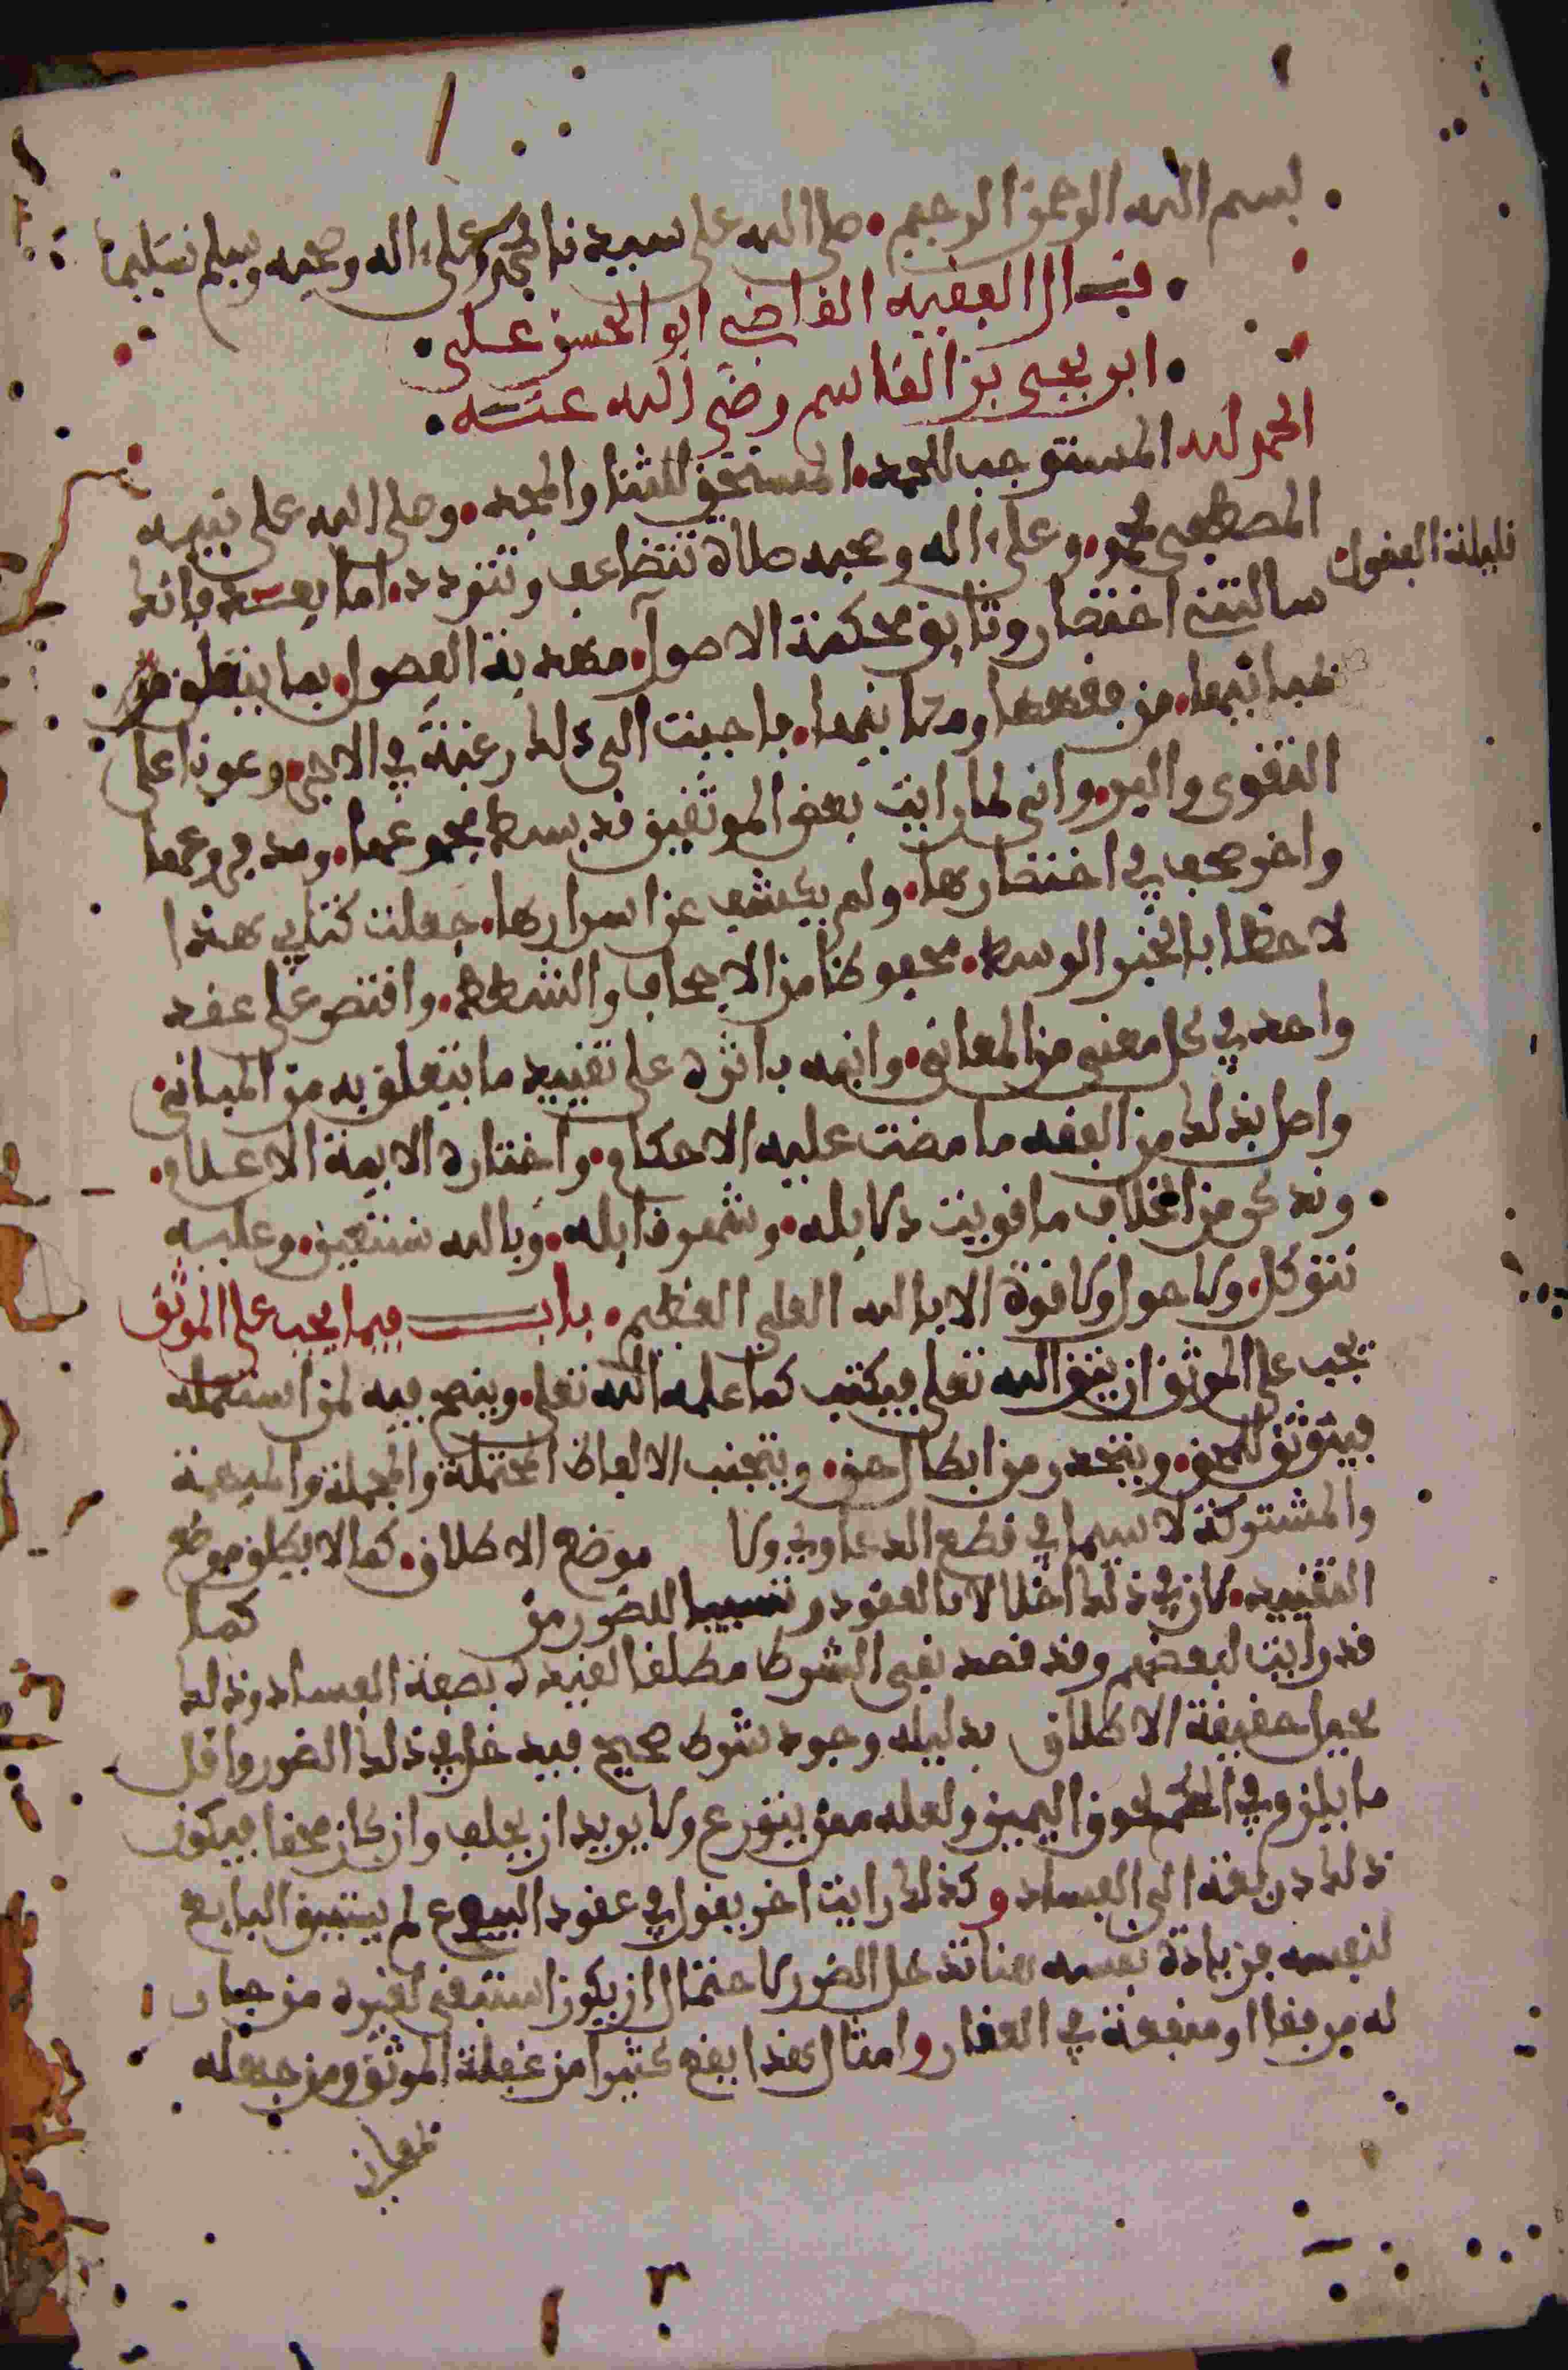 بسم الله الرحمن الرحيم • صلى الله على سيدنا محمد وعلى ءاله وصحبه وسلم تسليما
• قال الفقيه القاضي ابو الحسن علي •
• ابو يحيى بن القاسم رضي الله عنه •
الحمد لله المستوجب للحمد • المستحق للثنا والمجد • وصلى الله على نبيه
المصطفى محمد • وعلى ءاله وصحبه صلاة تتضاعف وتتردد • اما بعد فانك
سالتني اختصار وثايق محكمة الاصول • مهذبة الفصول • بما يتعلق من
قليلة الفضول
معانيها • من فقهها ومبانيها • فاجبت الى ذلك رغبة في الاجر • وعونا على
التقوى والبر • واني لما رايت بعض الموثقين قد بسط مجموعها • ومد فروعها
واخر اجحف في اختصارها • ولم يكشف عن اسرارها • جعلت كتابي هذا
لاحظا بالخير الوسط • محفوظا من الاجحاف والشطط • واقتصر على عقد
واحد في كل معنى من المعاني • وانبه باثره على تقييد ما يتعلق به من المباني •
واصل بذلك من الفقه ما مضت عليه الاحكام • واختاره الايمة الاعلام •
• ونذكر من الخلاف ما قويت دلايله • وشهر قايله • وبالله نستعين • وعليه
نتوكل • ولا حول ولا قوة الا بالله العلي العظيم • باب فيما يجب على الموثق
يجب على الموثق ان يتق الله تعلى فيكتب كما علمه الله تعلى • وينصح فيه لمن استعمله
فيتوثق للحق • ويتحذر من ابطال حق • ويتجنب الالفاظ المحتملة والمجملة والمبهمة
والمشتركة لا سيما في قطع الدعاوي ولا موضع الاطلاق • كما لا يطلق موضع
التقييد • كان في ذلك اخلالا بالعقود وتسبيبا للضرر من كما
قد رايت لبعضهم وقد قصد نفي الشرط مطلقا لقيده بصفة الفساد وذلك
يحيل حقيقة الاطلاق بدليله وجود شرط صحيح فيدخل في ذلك الضرر واقل
ما يلزم في الحكم لحوق اليمين ولعله ممن يتورع ولا يريد ان يحلف وان كان محقا فيكون
ذلك ذريعة الى الفساد وكذلك رايت اخر يقول في عقود البيوع لم يستبق البايع
لنفسه فزيادة نفسه هنا تدخل الضرر لاحتمال ان يكون استبقى لغيره من جعل
له مرفقا او منفعة في العقار وامثال هذا يقع كثيرا من غفلة الموثق ومن جهله